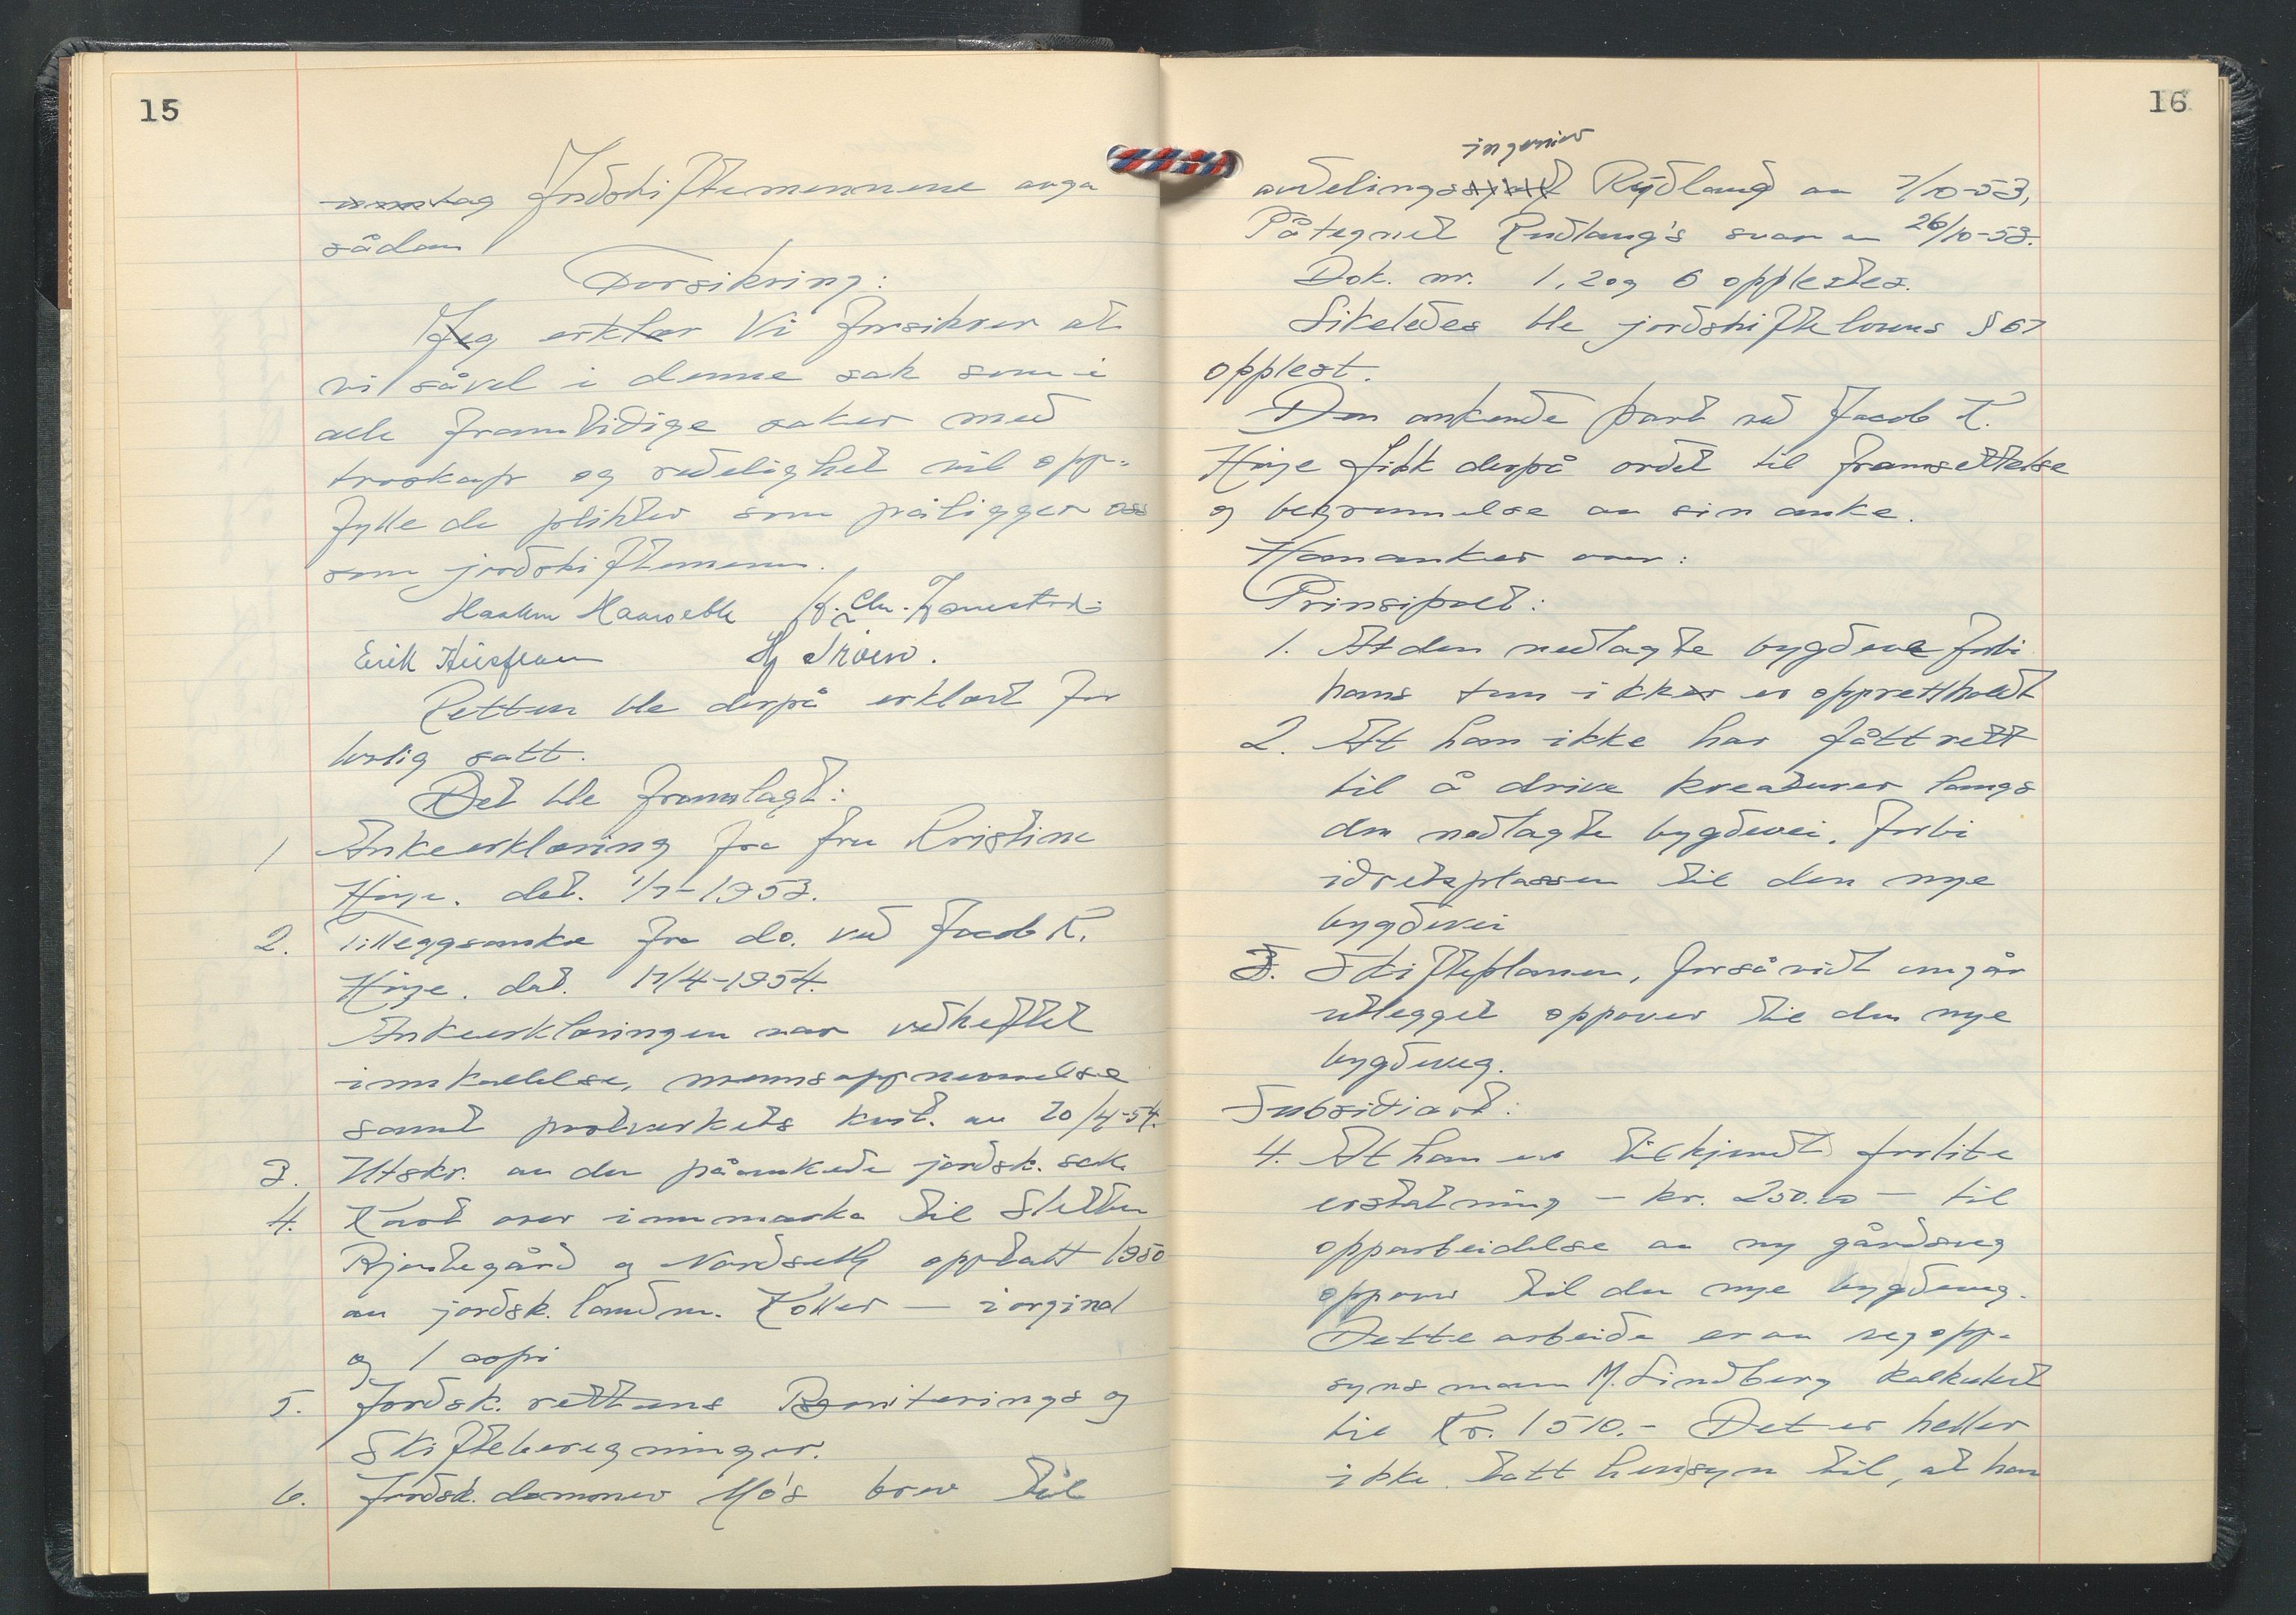 15
Jordskiftemennene avga
sådan
Forsikring:
Jeg erklær Vi forsikrer at
vi såvel i denne sak som i
alle framtidige saker med
troskap og redelighet vil opp-
fylle de plikter som påligger oss
som jordskiftemenn.
Erik
Retten ble derpå erklært for
lovlig satt.
Det ble framlagt:
1 Ankeerklæring fra fru Kristine
Høye. dat. 1/7-1953.
2. Tilleggsanke fra do. ved Jacob K.
Høye. dat. 17/4-1954.
Ankeerklæringen var vedheftet
innkallelse, mannsoppnevnelse
samt postverkets kvit. av 20/4-54.
3. Utskr. av den påankede jordsk. sak
4. Kart over innmarka til Sletten
og Nordseth opptatt 1950
av jordsk. landm. Koller — i orginal
og 1 copi
5. Jordsk. rettens Boniterings og
Skifteberegninger.
6. Jordsk. dommer Mo's brev til
16
ingeniør
avdelings Rydland av 7/10-53,
Påtegnet Rudland's svar av 26/10-53.
Dok. nr. 1, 2 og 6 opplestes.
Likeledes ble jordskiftelovens § 67
opplest.
Den ankende part ved Jacob K.
Høye fikk derpå ordet til framsettelse
og begrunnelse av sin anke.
Han anker over:
Prinsipalt:
1. At den nedlagte bygdevei forbi
hans tun ikke er opprettholdt
2. At han ikke har fått rett
til å drive kreaturer langs
den nedlagte bygdevei. forbi
idretsplassen til den nye
bygdevei
3. Skifteplanen, forsåvidt angår
utlegget oppover til den nye
bygdeveg.
Subsidiært:
4. At han er tilkjendt forlite
erstatning — kr. 250.00 — til
opparbeidelse av ny gårdsveg
oppover til den nye bygdeveg.
Dette arbeide er av vegopp-
synsmann M. Lindberg kalkulert
til Kr. 1510.- Det er heller
ikke tatt hensyn til, at han